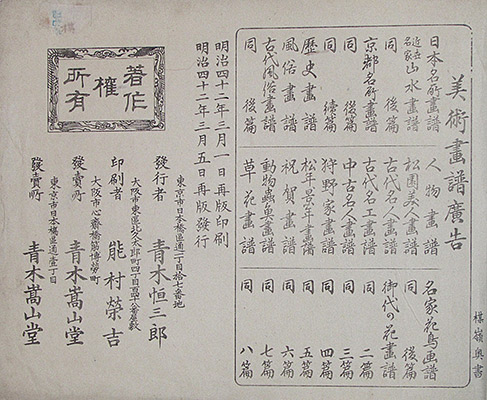 楳嶺奥書
美術畫譜廣告
日本名所畫譜
近世名家山水畫譜
同 後篇
京都名所畫譜
同 後篇
同 續篇
歷史畫譜
風俗畫譜
古代風俗畫譜
同 後篇
人物畫譜
松園美人畫譜
古代名人畫譜
古代名工畫譜
中古名人畫譜
狩野家畫譜
松年景年畫譜
祝賀畫譜
動物蟲魚畫譜
草花畫譜
名家花鳥画譜
同 後篇
御代の花畫譜
同 二篇
同 三篇
同 四篇
同 五篇
同 六篇
同 七篇
同 八篇
明治四十二年三月一日再版印刷
明治四十二年三月五日再版發行
東京市日本橋區通一丁目拾七番地
發行者 青木恒三郎
大阪市東區北久太郎町四丁目百四十八番屋敷
印刷者 能村榮吉
大阪市心齋橋筋博勞町
發賣所 青木嵩山堂
東京市日本橋區通壹丁目
發賣所 青木嵩山堂
著作
權
所有